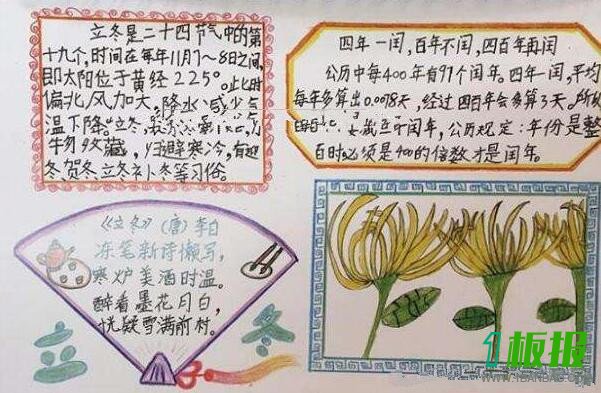 立冬是二十四节气中的第
十九个,时间在每年11月7～8日之间,
即太阳位于黄经225°。此时
偏北风加大,降水减少气
温下降。立冬,
物收藏,归避寒冷,有迎
冬、贺冬、立冬补冬等习俗。
四年一闰,百年不闰,四百年再闰
公历中每400年有97个闰年。四年一闰,平均
每年多算出0.0078天,经过四百年会多算3天。所以
闰年,公历规定:年份是整
百时必须是400的倍数才是闰年。
《立冬》(唐)李白
冻笔新诗懒写,
寒炉美酒时温。
醉看墨花月白,
恍疑雪满前村。
立冬
板报
WWW.1BANBAO.COM